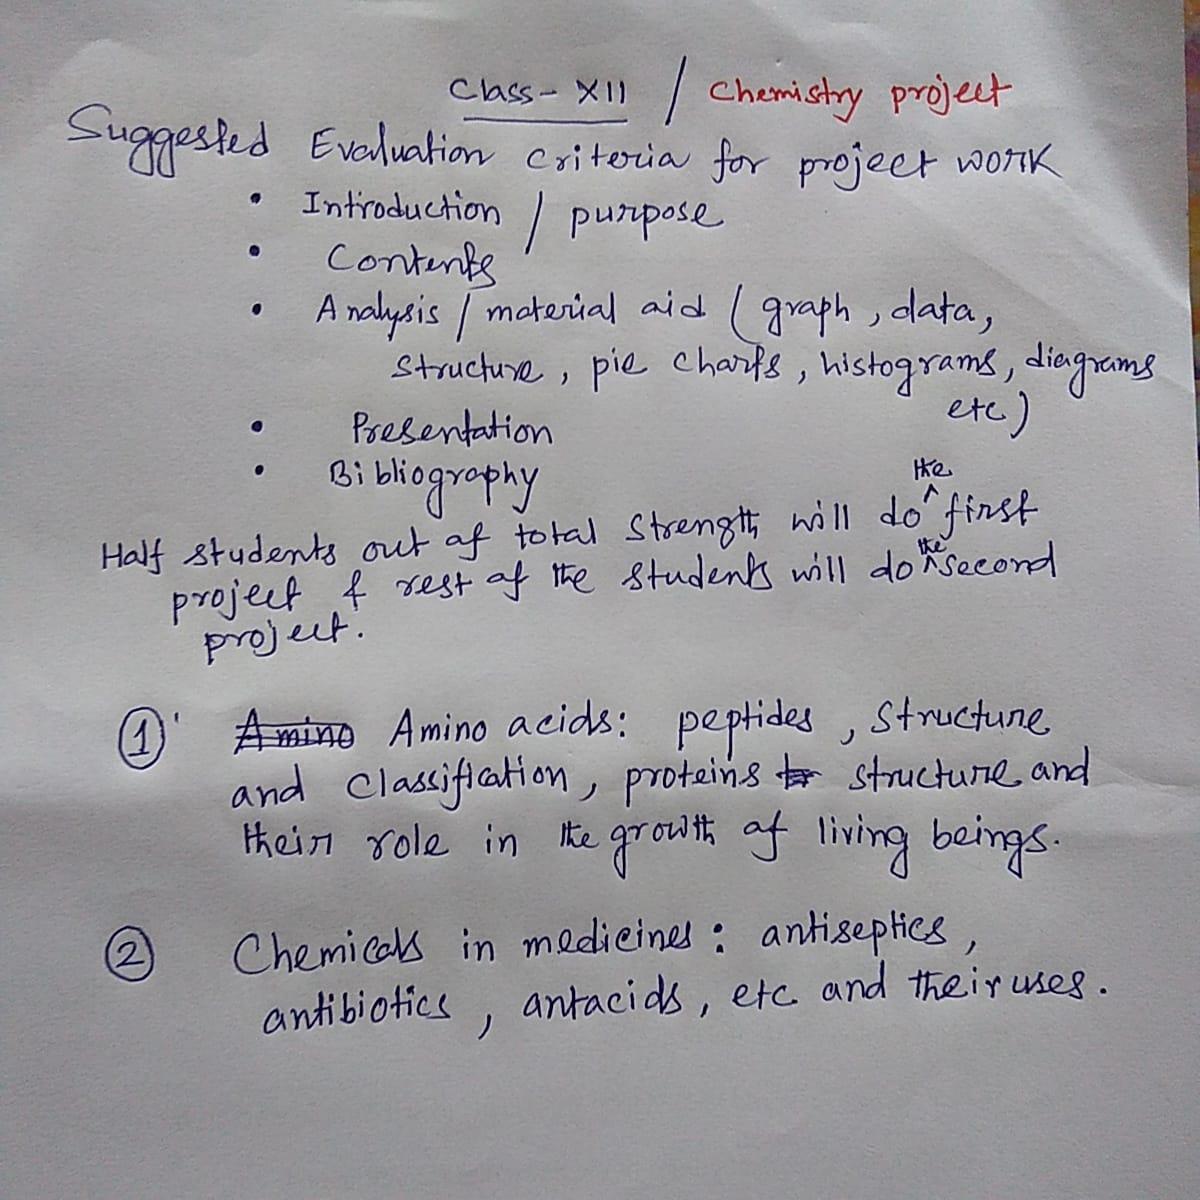 Class - XII / Chemistry project
Suggested Evaluation criteria for project work
• Introduction / purpose
• Contents
• Analysis / material aid ( graph , data,
structure , pie charts , histograms, diagrams
etc)
• Presentation
• Bibliography
Half students out of total strength will do the first
project & rest of the students will do the second
project.
① Amino Amino acids: peptides , structure
and classification , proteins structure and
their role in the growth of living beings.
② Chemicals in medicines : antiseptics ,
antibiotics , antacids , etc and their uses .